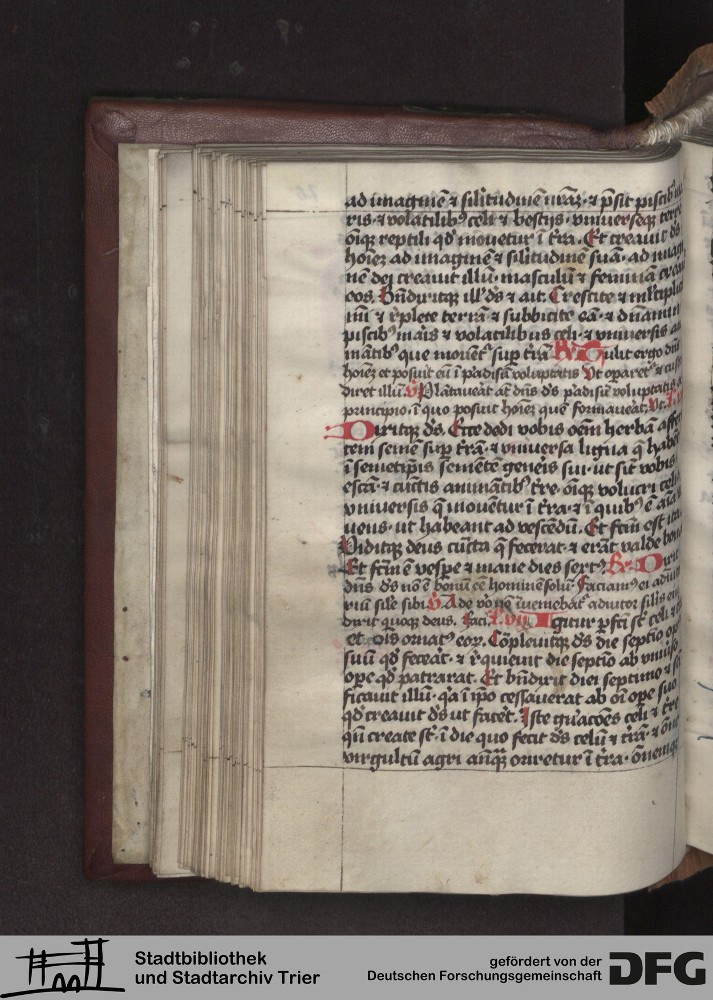 ad imaginē ⁊ silitudinē nr̄aꝫ · ⁊ p̄sit piscibꝰ
ris · ⁊ volatilibꝰ celi ⁊ bestijs · vniuerseqꝫ terre
oīqꝫ reptili qd̓ mouetur ī t̄ra . Et creauit ds̄
hoīeꝫ ad imaginē ⁊ silitudinē suā · ad imagi
nē dei creauit illū · masculū ⁊ feminā creauit
eos . Bn̄dixitqꝫ ill̓ ds̄ ⁊ ait . Crescite ⁊ ml̓tiplica
mī ⁊ r̄plete terrā ⁊ subbicite eā · ⁊ dn̄amini
piscibꝰ maīs ⁊ volatilibus celi · ⁊ vniuersis ani
mātibꝰ que mouēt᷑ sup̄ t̄rā R̄ Tulit ergo dn̄s
hoīeꝫ et posuit eū ī ꝑadisū voluptatis Vt oparet᷑ ⁊ custo
diret illū . V̄ Plātauāt at̄ dn̄s ds̄ ꝑadisū voluptatis a
principio · ī quo posuit hoīeꝫ quē formauāt . Vt .
Dixitqꝫ ds̄ . Ecce dedi vobis oēm herbā affe
tem semē sup̄ t̄rā · ⁊ vniuersa ligna q̄ habēt
ī semetip̄is semētē geneīs sui · ut sīt vobis ī
escā · ⁊ cūctis animātibꝰ t̄re · oīqꝫ volucri celi ⁊
vniuersis q̄ mouētur ī t̄ra · ⁊ ī quibꝰ ē aīa vi
uens · ut habeant ad vescēdū . Et fcm̄ est ita
Viditqꝫ deus cūcta q̄ fecerat · ⁊ erāt valde bona
Et fcm̄ ē vesꝑe ⁊ mane dies sextꝰ R̄ Dixit
dn̄s ds̄ nō ē bonū eē hominē solū · Faciamꝰ ei adiuto
riū sil̓e sibi V̄ Ade v̓o nō inueniebāt᷑ adiutor silis eiꝰ
dixit quoqꝫ deus . Faci . L. vij Igitur ꝑfci st̄ celi ⁊ t̄ra
et oīs ornatꝰ eoꝝ . Cōpleuitqꝫ ds̄ die septīo opꝰ
suū qd̓ feceāt · ⁊ r̄quieuit die septīo ab vniuso
ope qd̓ patrarat . Et bn̄dixit diei septimo ⁊ sc̄i
ficauit illū · qa ī ip̄o cessauerat ab oī ope suo
qd̓ creauit ds̄ ut facēt . Iste gn̓acōes celi ⁊ t̄re
qn̄ create st̄ · ī die quo fecit ds̄ celū ⁊ t̄rā · ⁊ ōne
virgultū agri anq̄ꝫ oriretur ī t̄ra · ōnemqꝫ
Stadtbibliothek
und Stadtarchiv Trier
gefördert von der
Deutschen Forschungsgemeinschaft
DFG